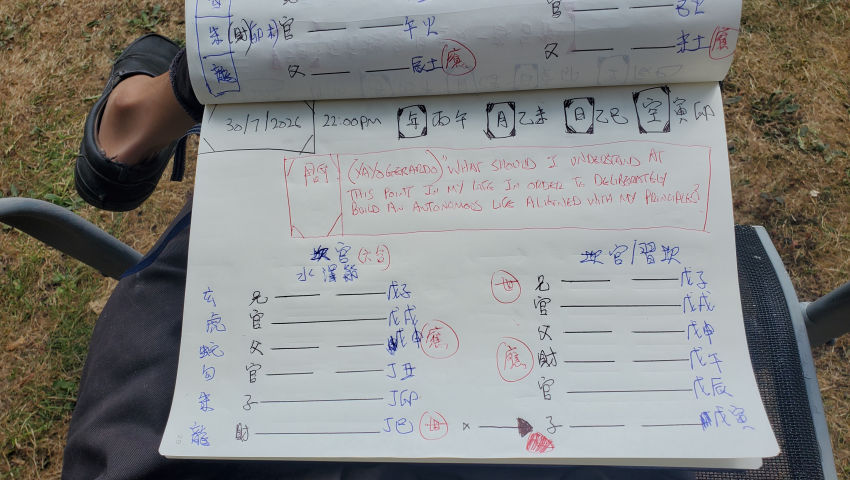 官 午火
父 辰土 應
父 未土 應
龍
30/7/2026 22:00pm 年 丙午 月 乙未 日 乙巳 空 寅卯
問 (YAYOGGERARDO) "WHAT SHOULD I UNDERSTAND AT
THIS POINT IN MY LIFE IN ORDER TO DELIBERATELY
BUILD AN AUTONOMOUS LIFE ALIGNED WITH MY PRINCIPLES?
坎宮 (六合)
水澤節
坎宮/習坎
玄 兄 戊子 世 兄 戊子
虎 官 戊戌 官 戊戌
蛇 父 戊申 應 父 戊申
勾 官 丁丑 應 財 戊午
朱 子 丁卯 官 戊辰
龍 財 丁巳 世 × 子 戊寅